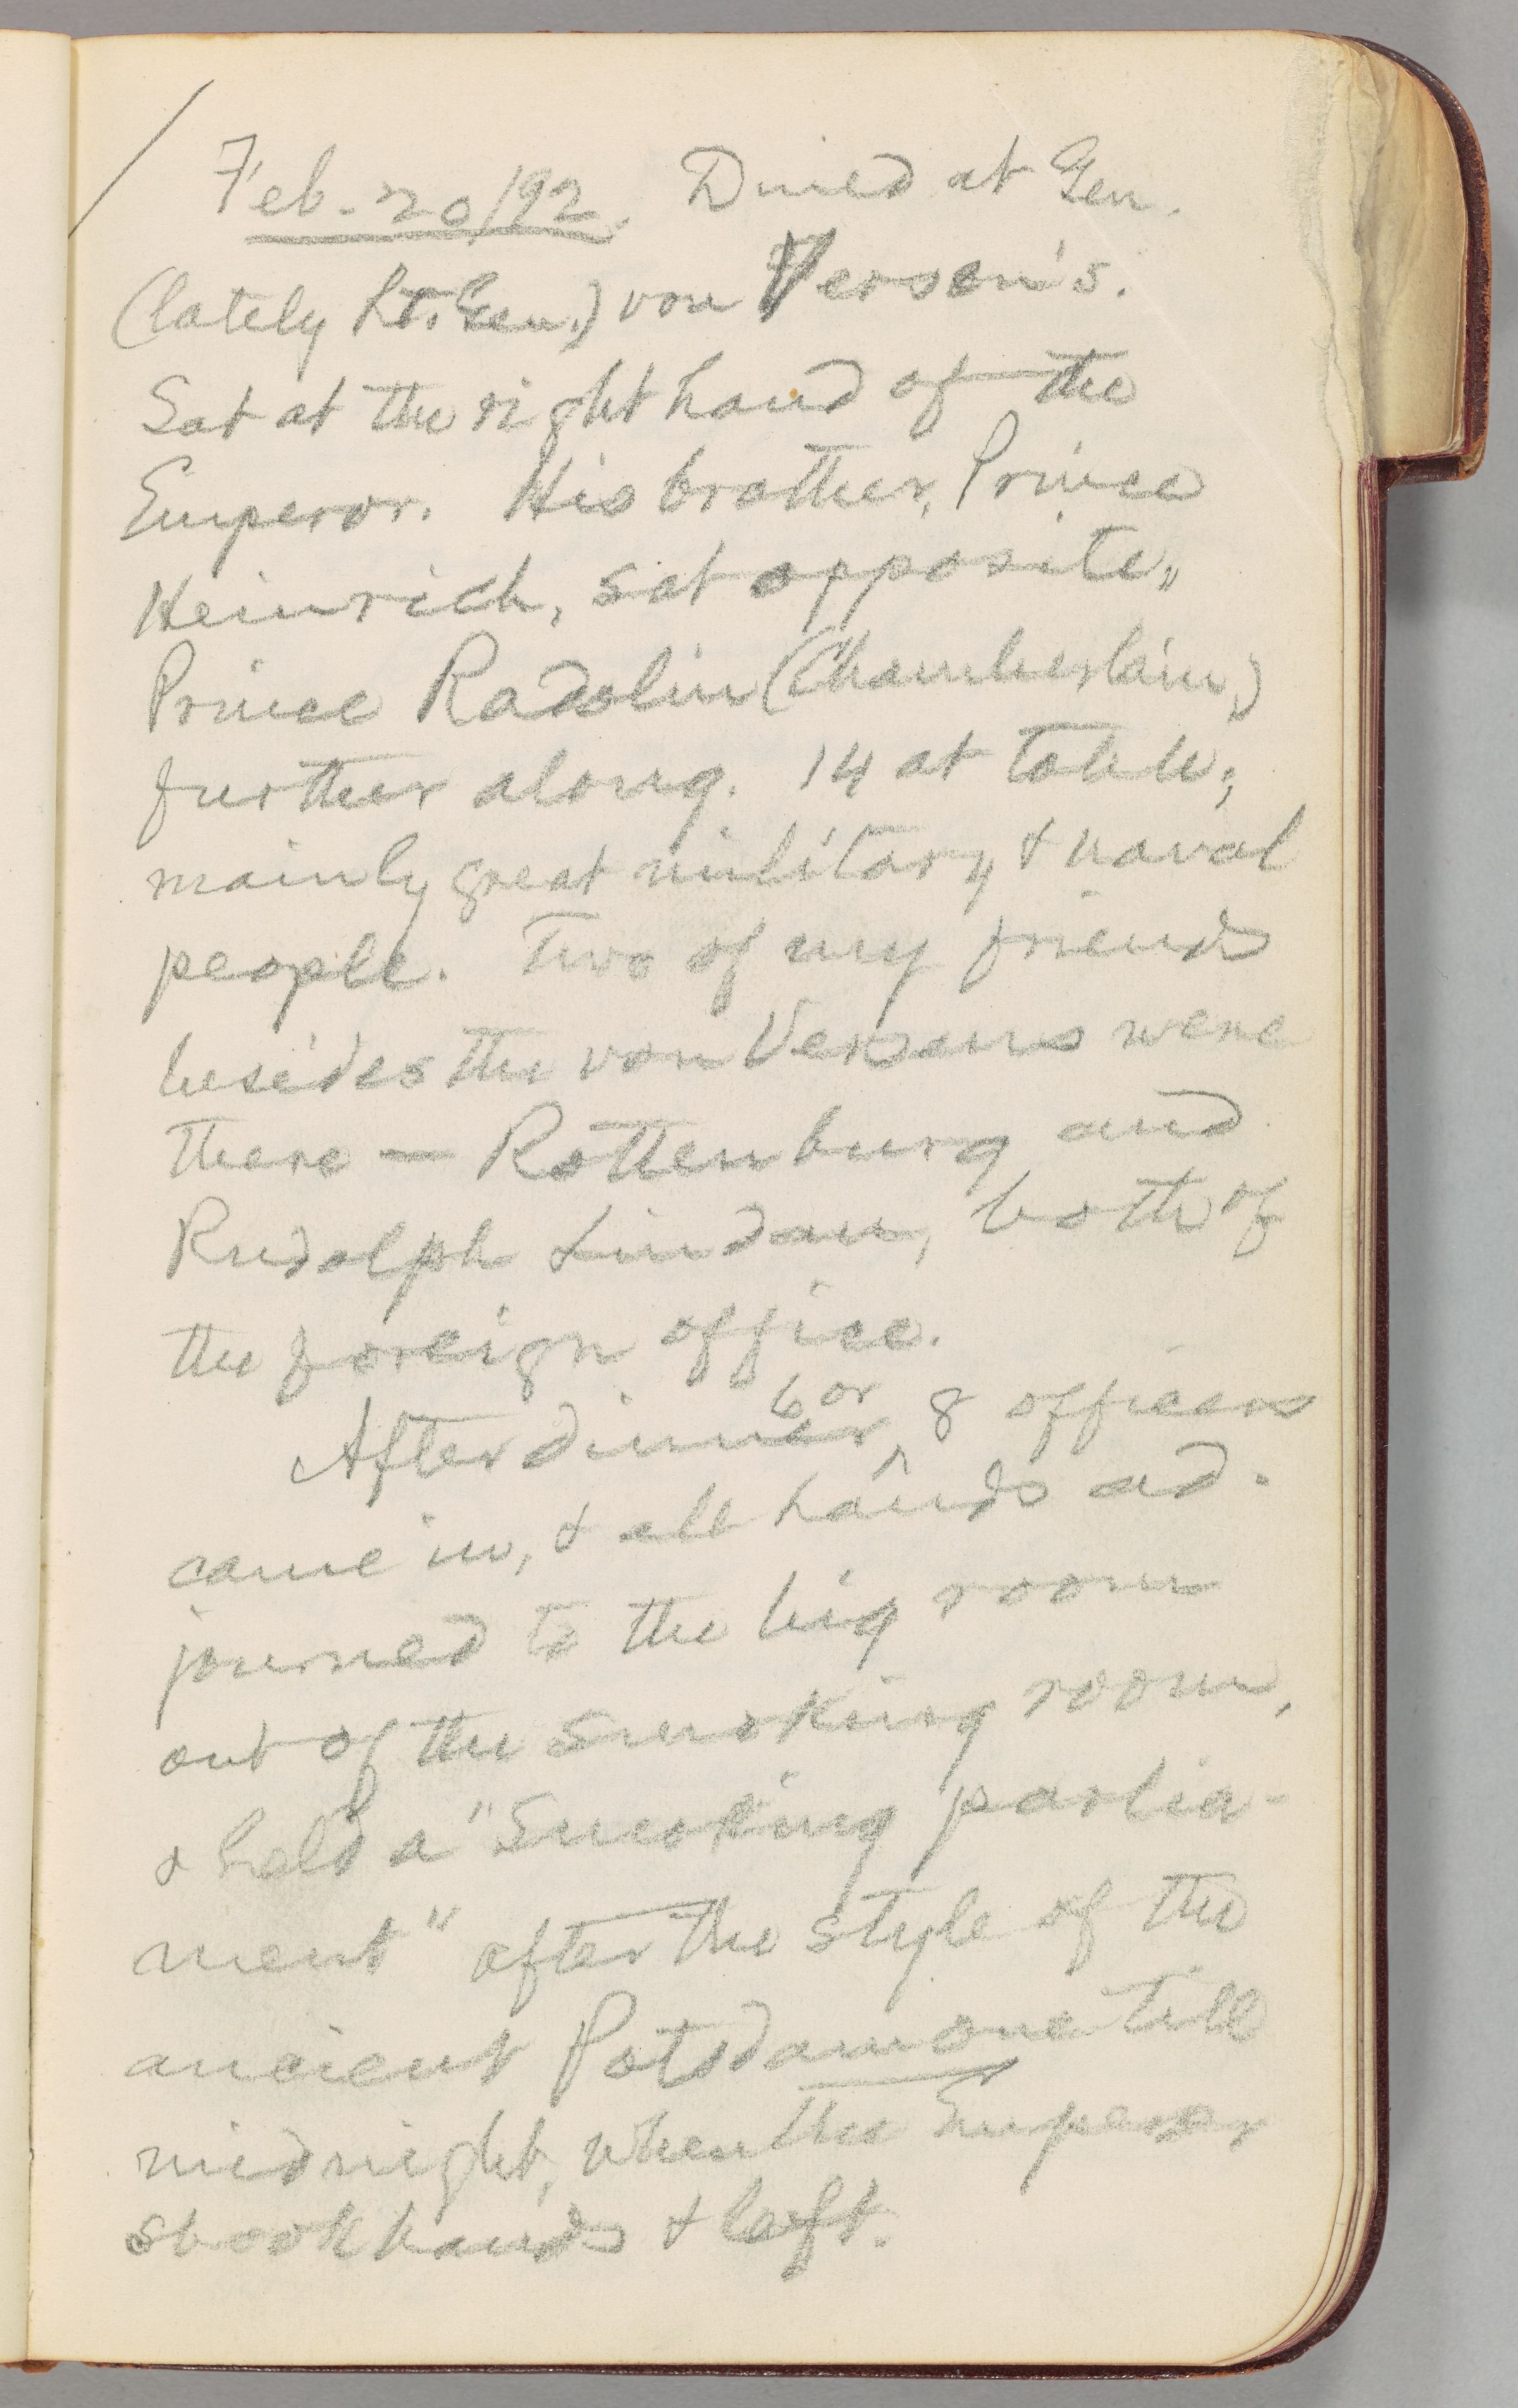 Feb. 20/92. Dined at Gen.
(lately Lt. Gen.) von Versen's.
Sat at the right hand of the
Emperor. His brother, Prince
Heinrich, sat opposite,
Prince Radolin (Chamberlain,)
further along. 14 at table;
mainly great military & naval
people. Two of my friends
besides the von Versens were
there — Rottenburg and
Rudolph Lindau, both of
the foreign office.
After dinner 6 or 8 officers
came in, & all hands ad-
journed to the big room
out of the smoking room,
& held a "smoking parlia-
ment" after the style of the
ancient Potsdam one till
midnight, when the Emperor
shook hands & left.